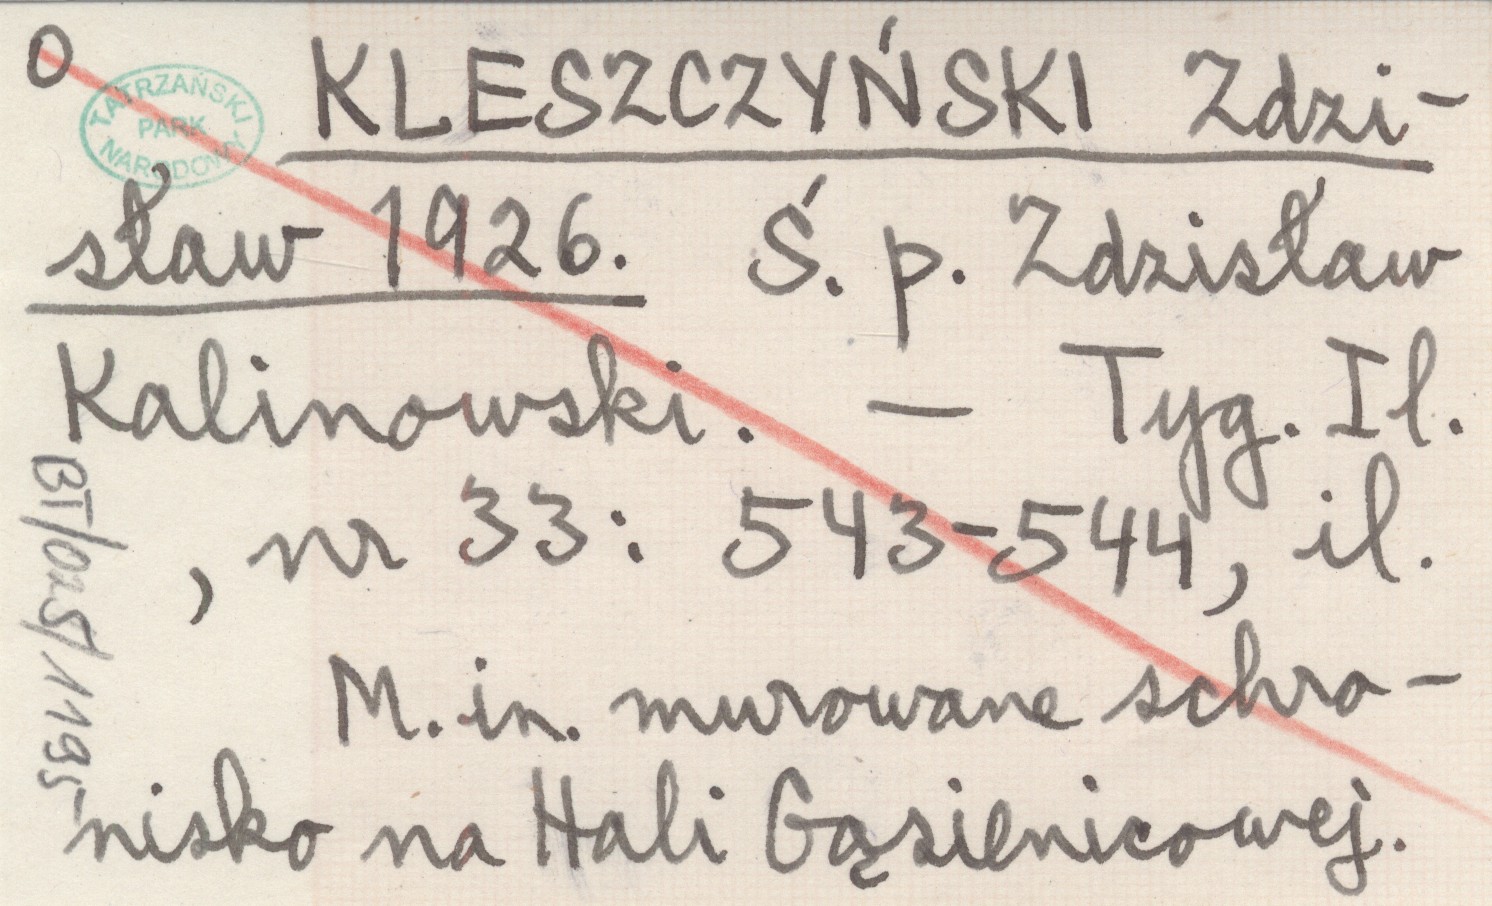 O
TATRZAŃSKI
PARK
NARODOWY
KLESZCZYŃSKI Zdzi-
sław 1926. Ś. p. Zdzisław
Kalinowski. — Tyg. Il.
, nr 33: 543-544, il.
M. in. murowane schro-
nisko na Hali Gąsienicowej.
BT/025/1195